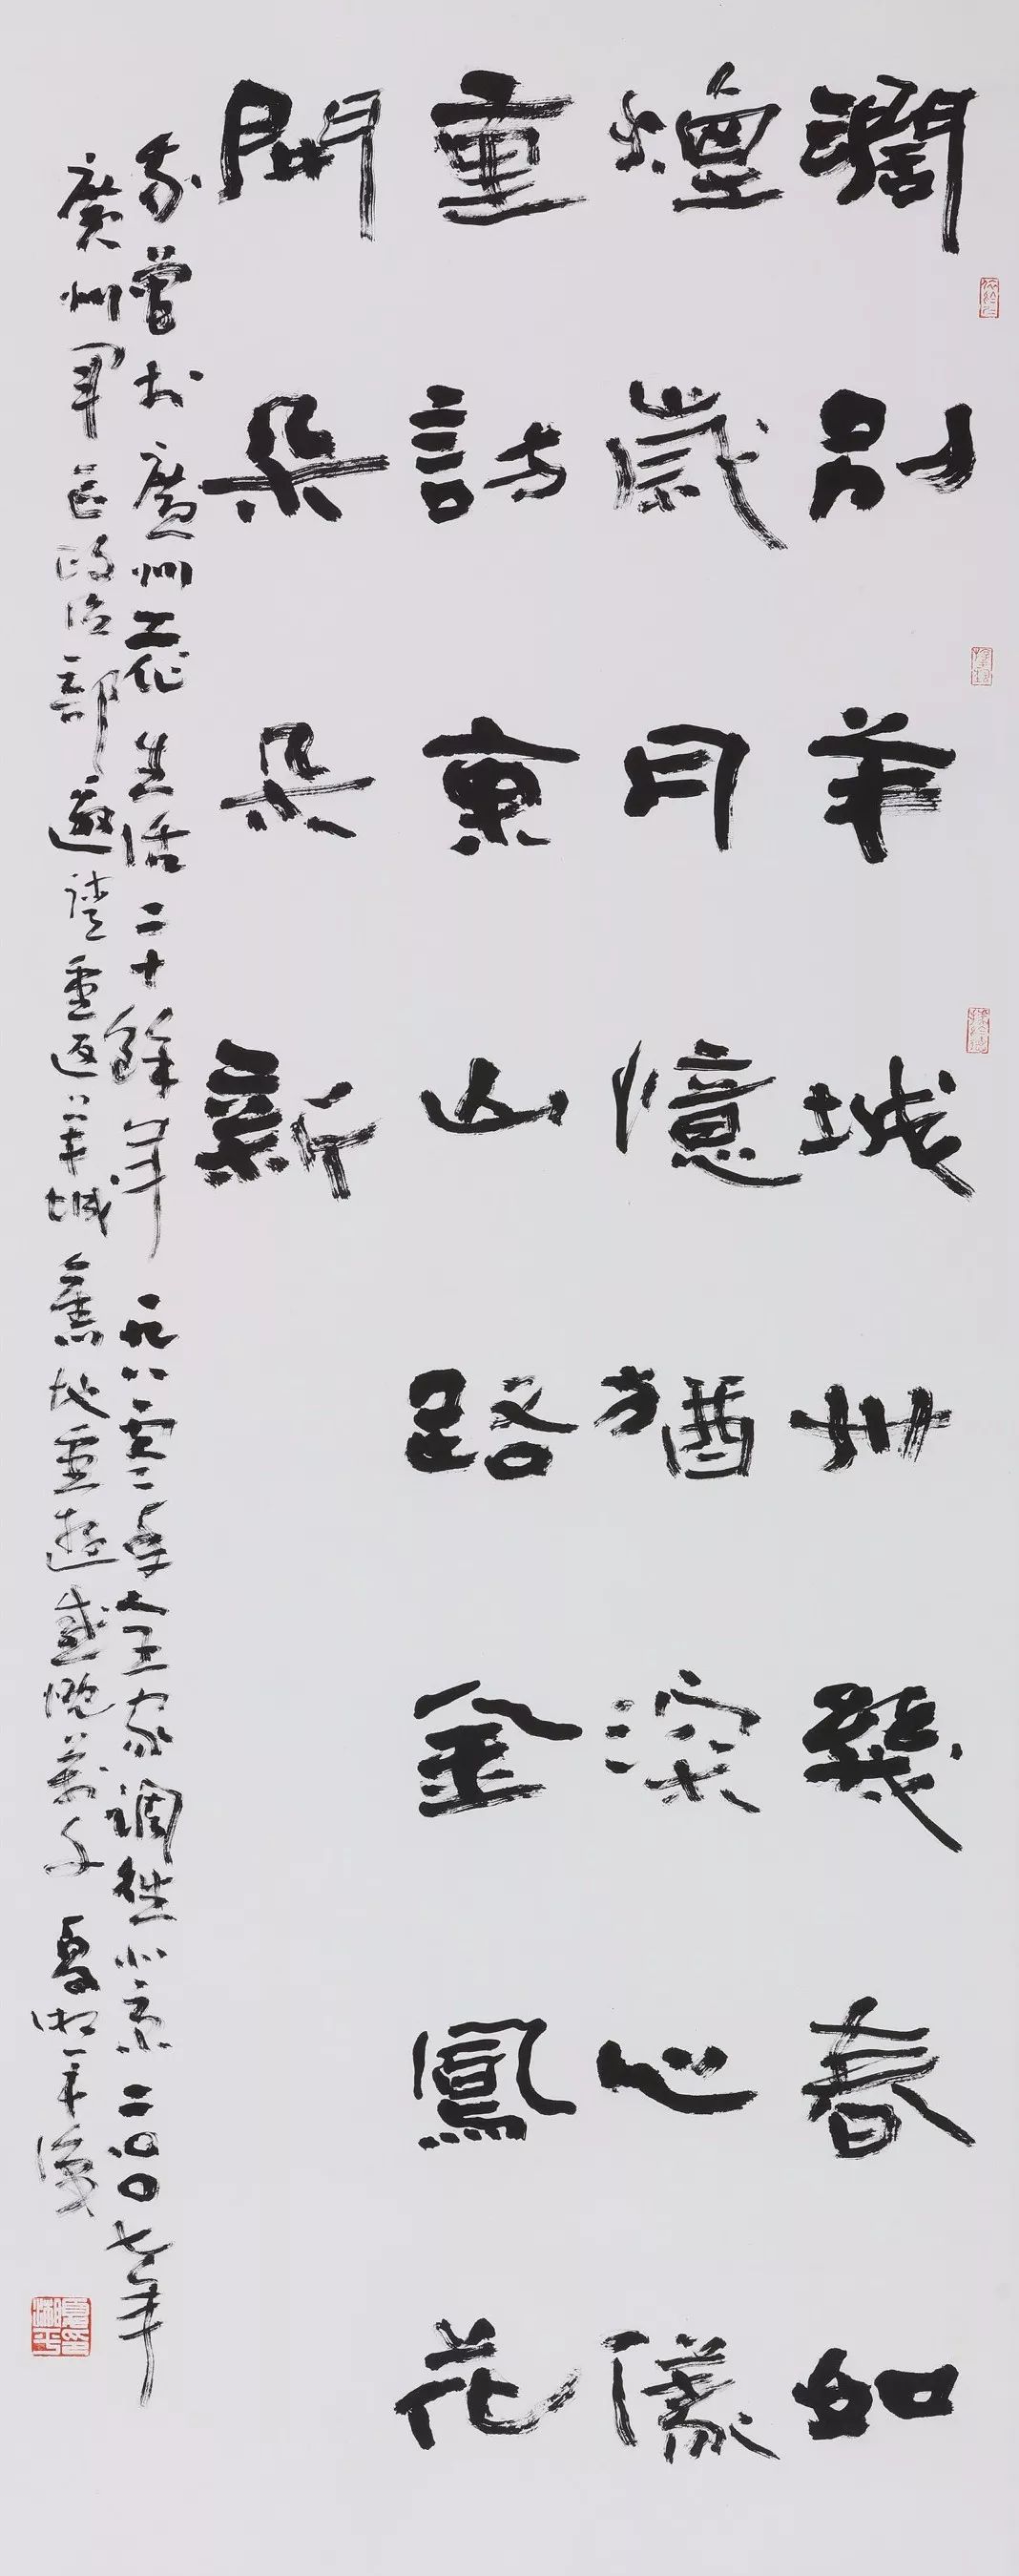 濶別羊城卅幾春如
煌歲月憶猶深心儀
重訪東山路金鳳花
開朵朵新
我曾於廣州工作生活二十餘年一九八零年全家調往北京二〇〇七年
廣州軍區政治部邀請重返羊城舊地重遊感慨萬千夏湘平
夏湘平印